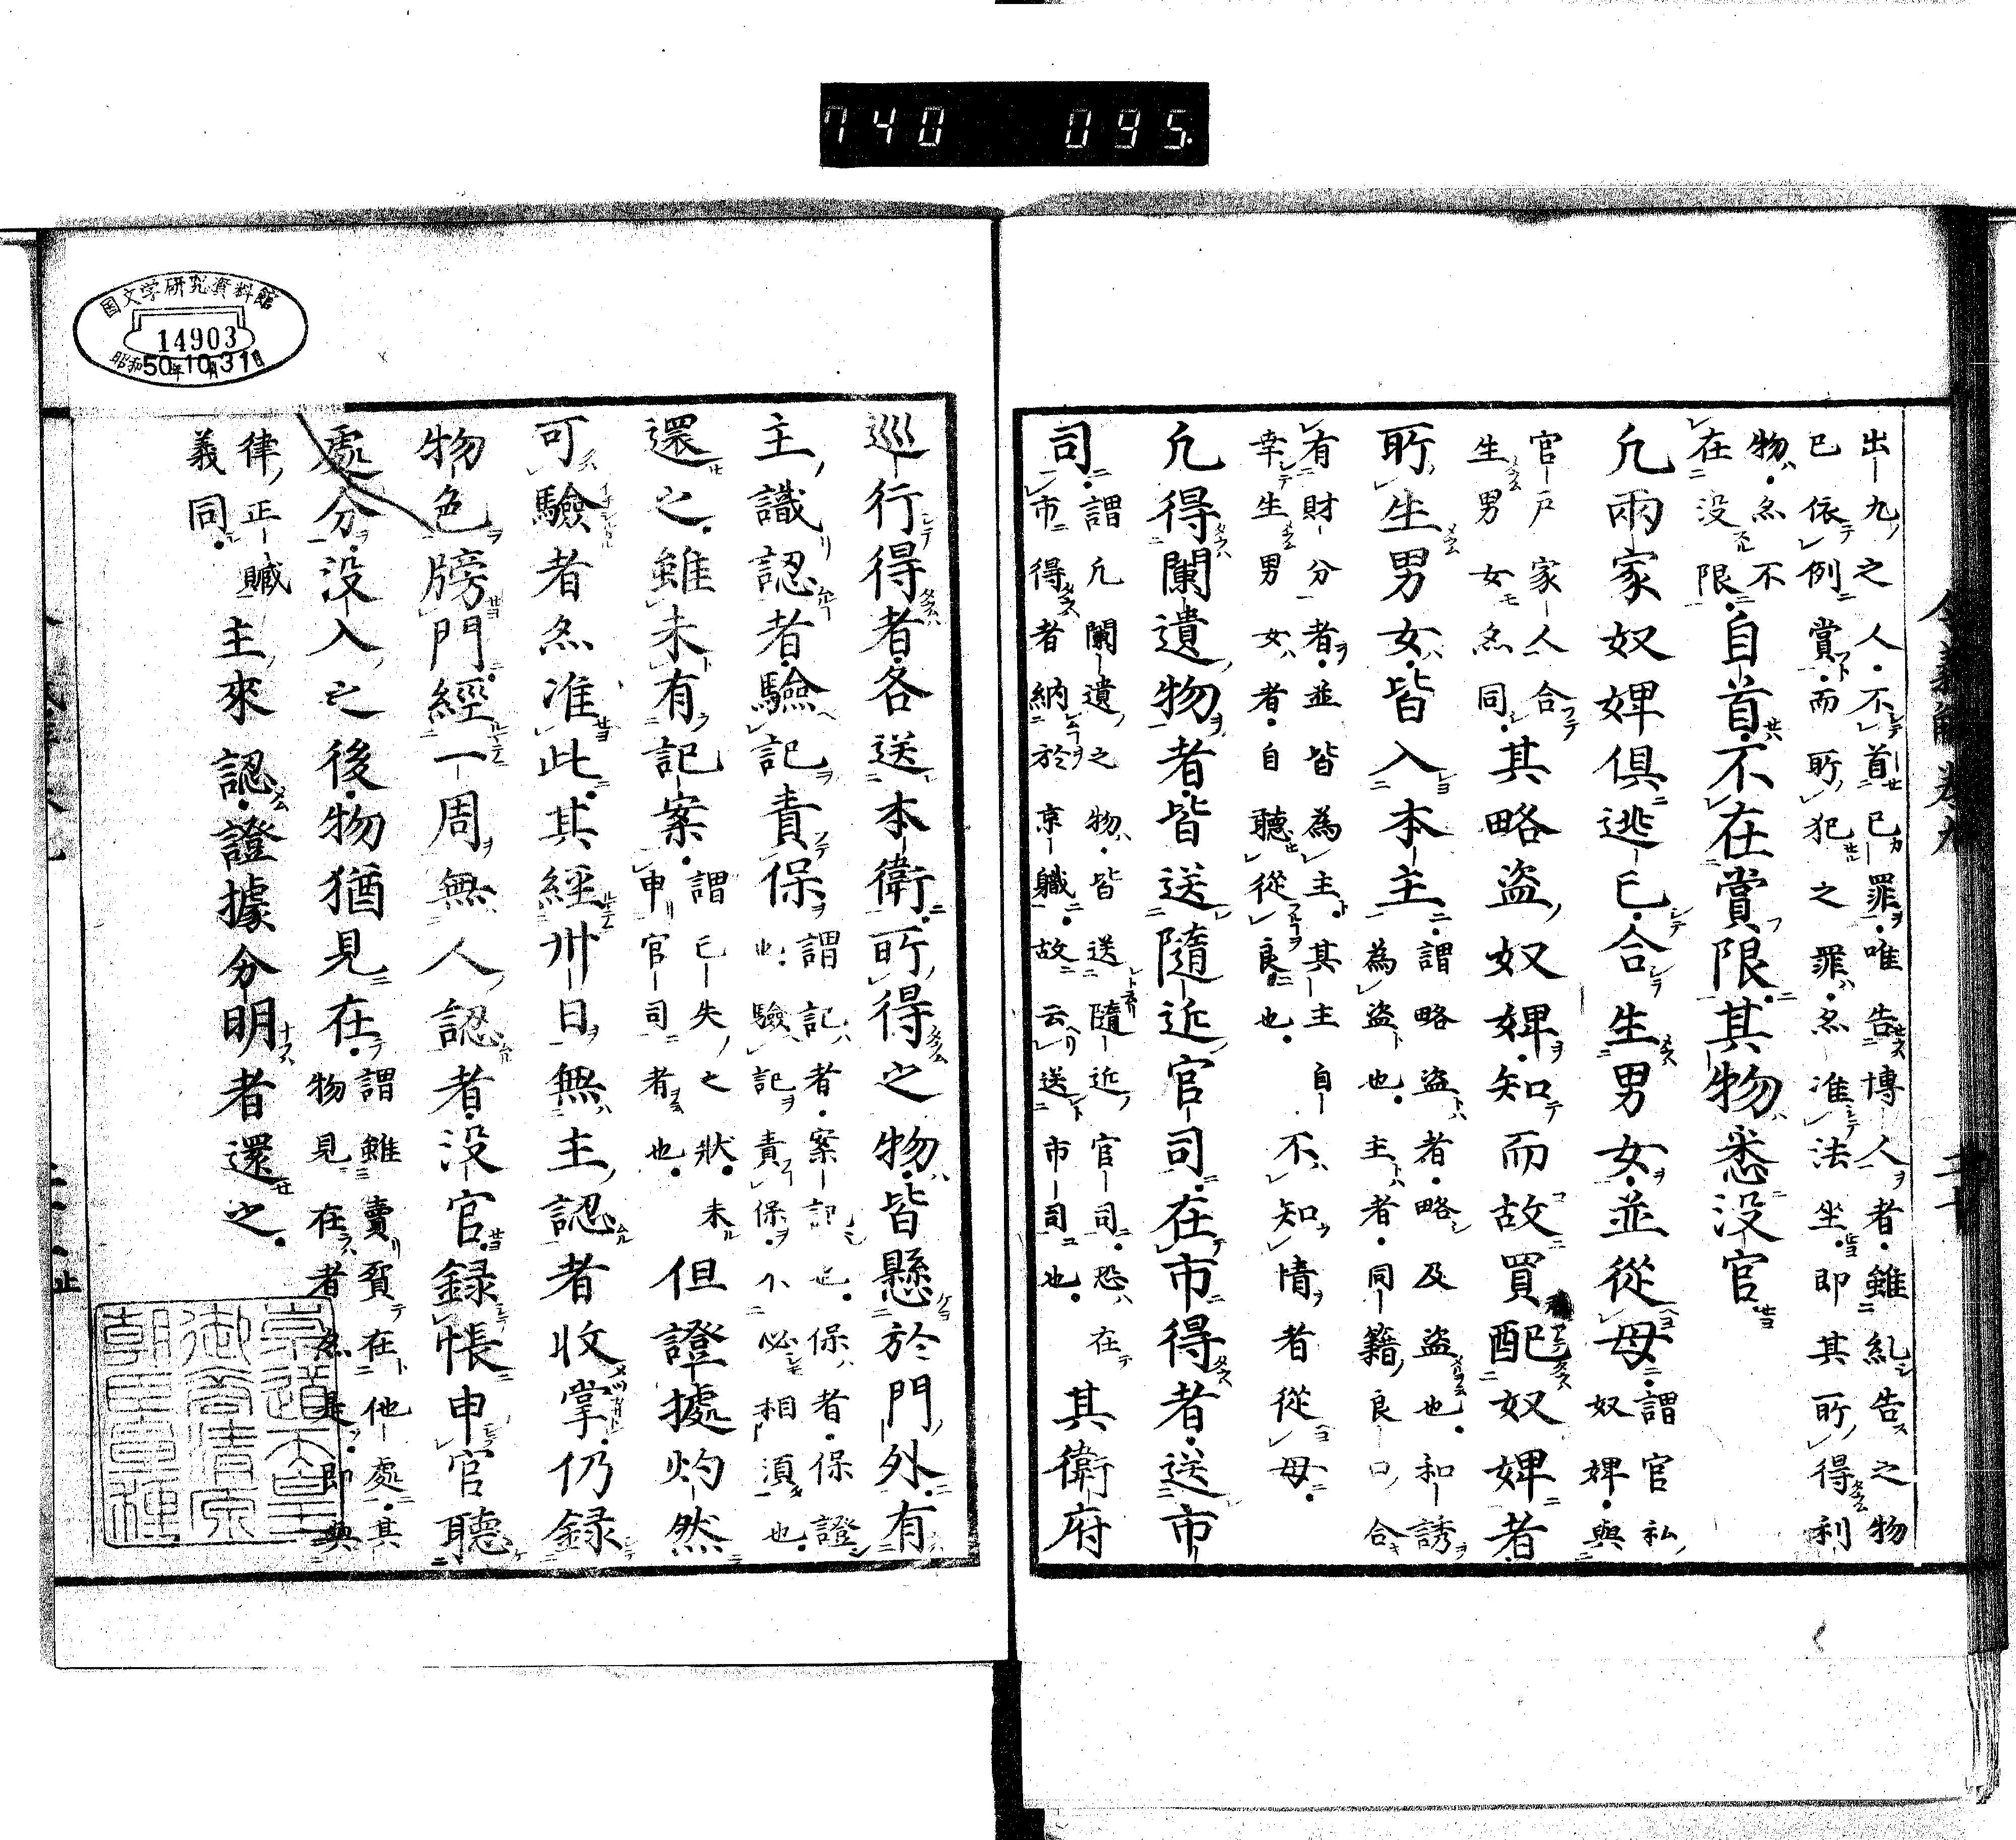 740 095.
出九之人不首已罪唯告博人者雖糺告之物
已依例賞而所犯之罪亦准法坐即其所得利
物亦不
在没限
自首不在賞限其物悉没官
凡兩家奴婢俱逃亡合生男女並從母
謂官私
奴婢與
官戸家人合
生男女亦同
其略盜奴婢知而故買配奴婢者
所生男女皆入本主
謂略盜者略及盜也和誘
為盜也主者同籍良口合
有財分者並皆為主其主自不知情者從母
幸生男女者自聽從良也
凡得闌遺物者皆送隨近官司在市得者送市
司
謂凡闌遺之物皆送隨近官司恐在
市得者納於京職故云送市司也
其衛府
巡行得者各送本衛所得之物皆懸於門外有
主識認者驗記責保
謂記者案記也保者保證
也驗記責保不必相須也
還之雖未有記案
謂亡失之狀未
申官司者也
但證據灼然
可驗者亦准此其經卅日無主認者收掌仍録
物色牓門經一周無人認者没官録帳申官聽
處分没入之後物猶見在
謂雖賣貿在他處其
物見在者亦是即與
律正贓
義同
主來認證據分明者還之
国文学研究資料館
14903
昭和50年10月31日